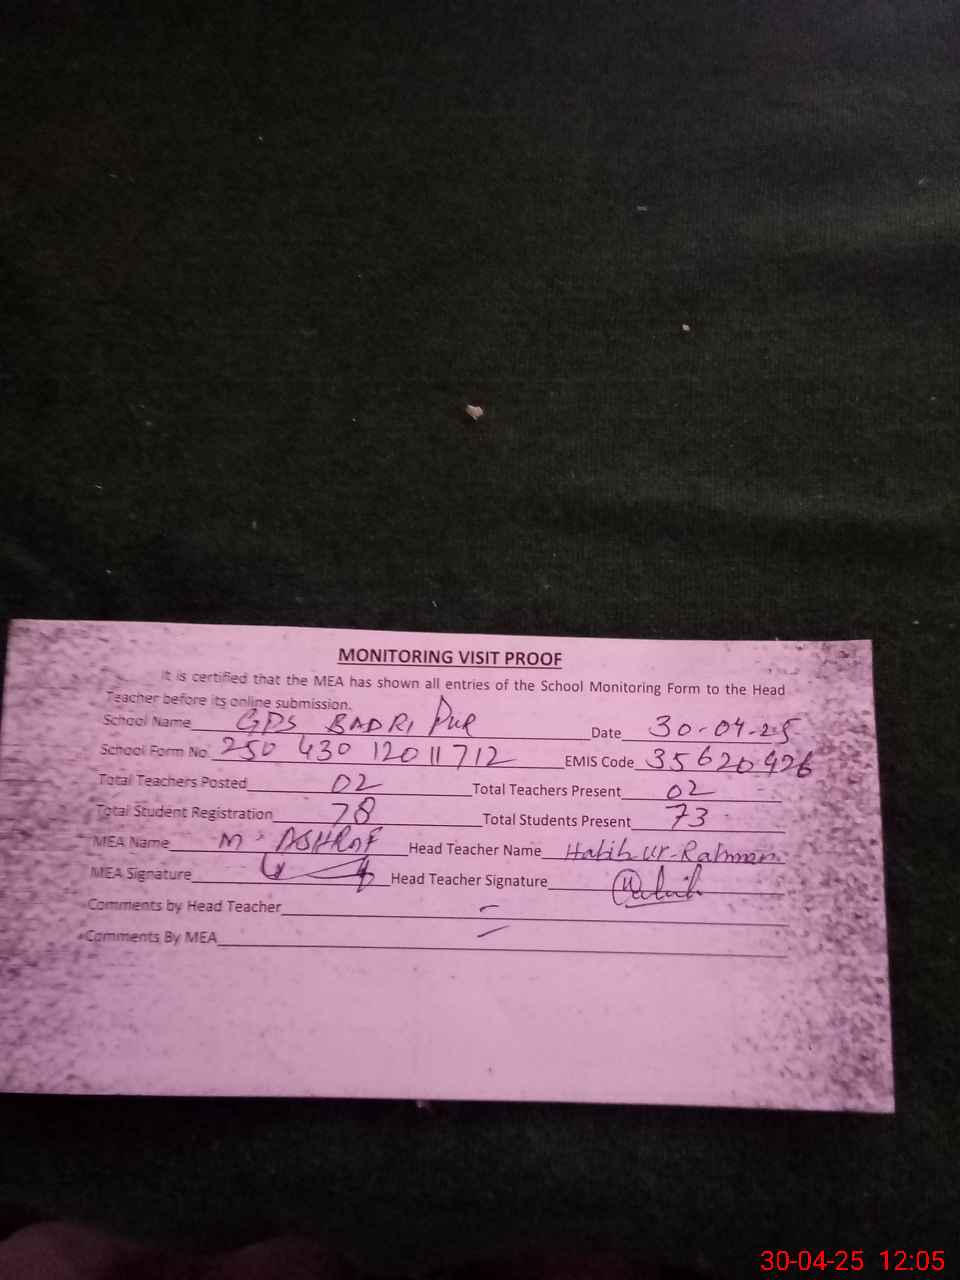 MONITORING VISIT PROOF
It is certified that the MEA has shown all entries of the School Monitoring Form to the Head
Teacher before its online submission.
School Name GPS BADRI Pur Date 30-04-25
School Form No. 250 430 12011712 EMIS Code 35620426
Total Teachers Posted 02 Total Teachers Present 02
Total Student Registration 78 Total Students Present 73
MEA Name M. ASHRAF Head Teacher Name Habib ur-Rahman
MEA Signature Head Teacher Signature
Comments by Head Teacher -
Comments By MEA -
30-04-25 12:05